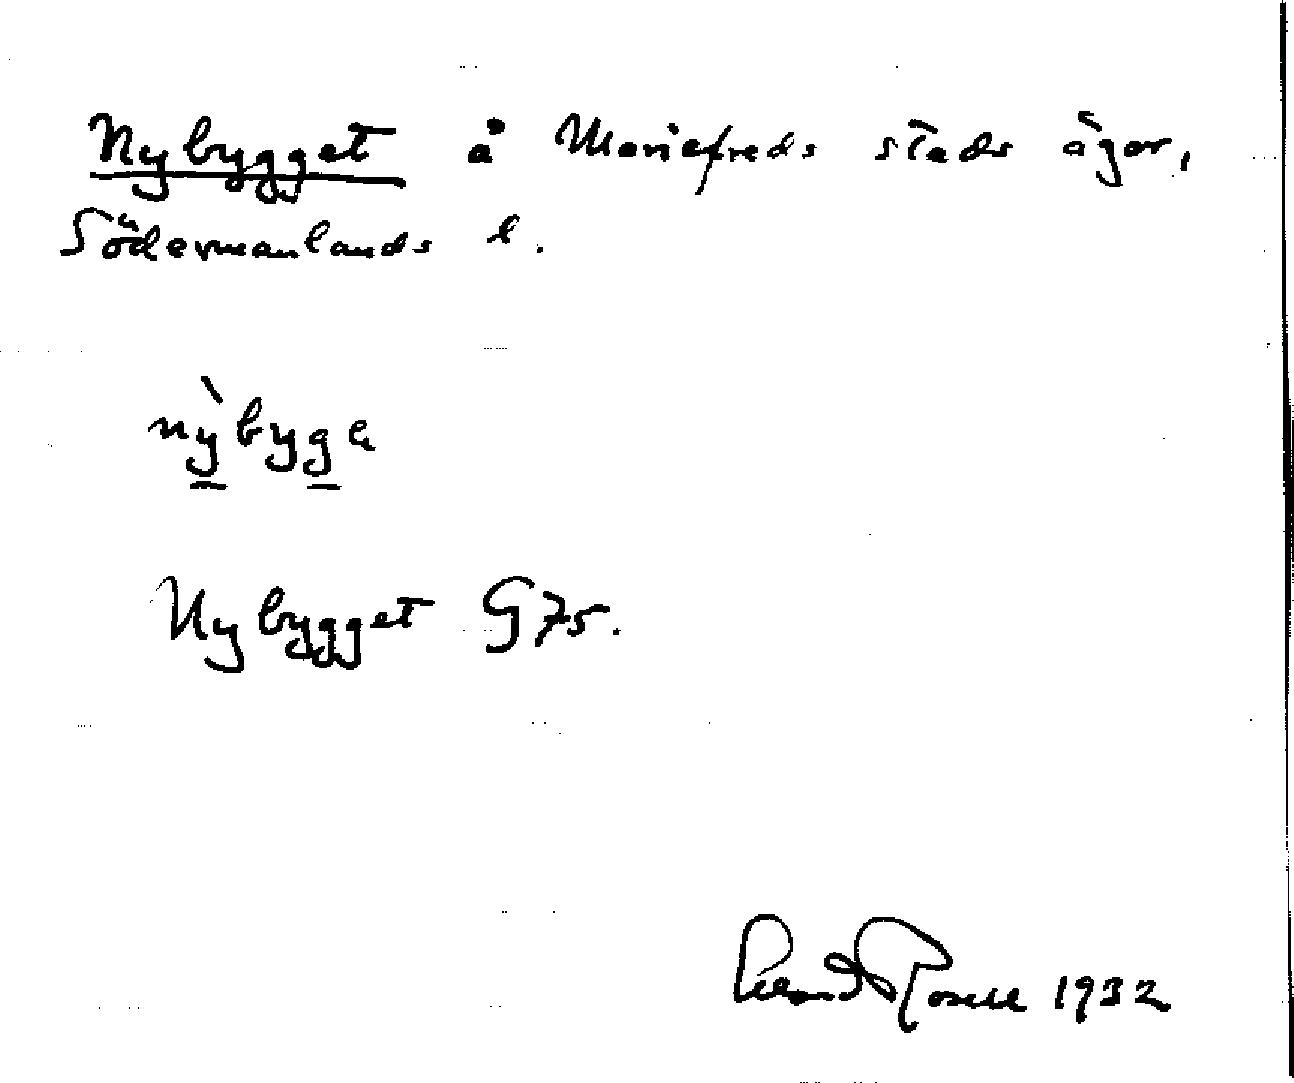 Nybygget å Mariefreds stads ägor,
Södermanlands l.
nỳbyga
Nybygget G75.
Erland Rosell 1932